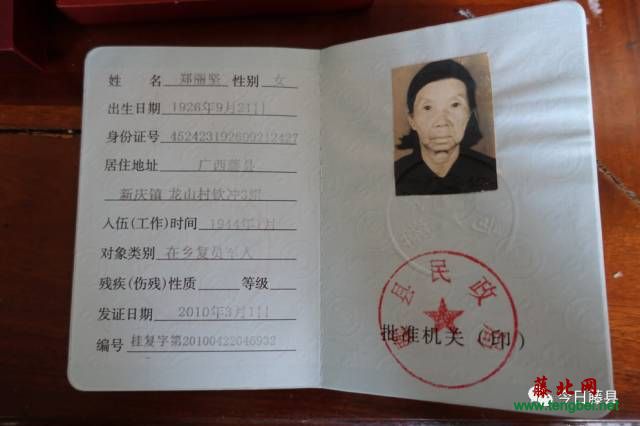 姓 名 郑丽坚 性别 女
出生日期 1926年9月21日
身份证号 452423192699212427
居住地址 广西藤县
新庆镇 龙山村钦冲3组
入伍(工作)时间 1944年7月
对象类别 在乡复员军人
残疾(伤残)性质 等级
发证日期 2010年3月1日
编号 桂复字第20100422046932
县民政局
批准机关(印)
藤北网
今日藤县
www.tengbei.net